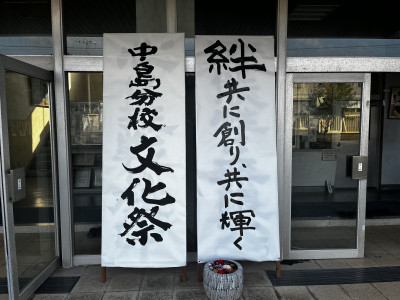 中島分校文化祭
絆共に創り、共に輝く